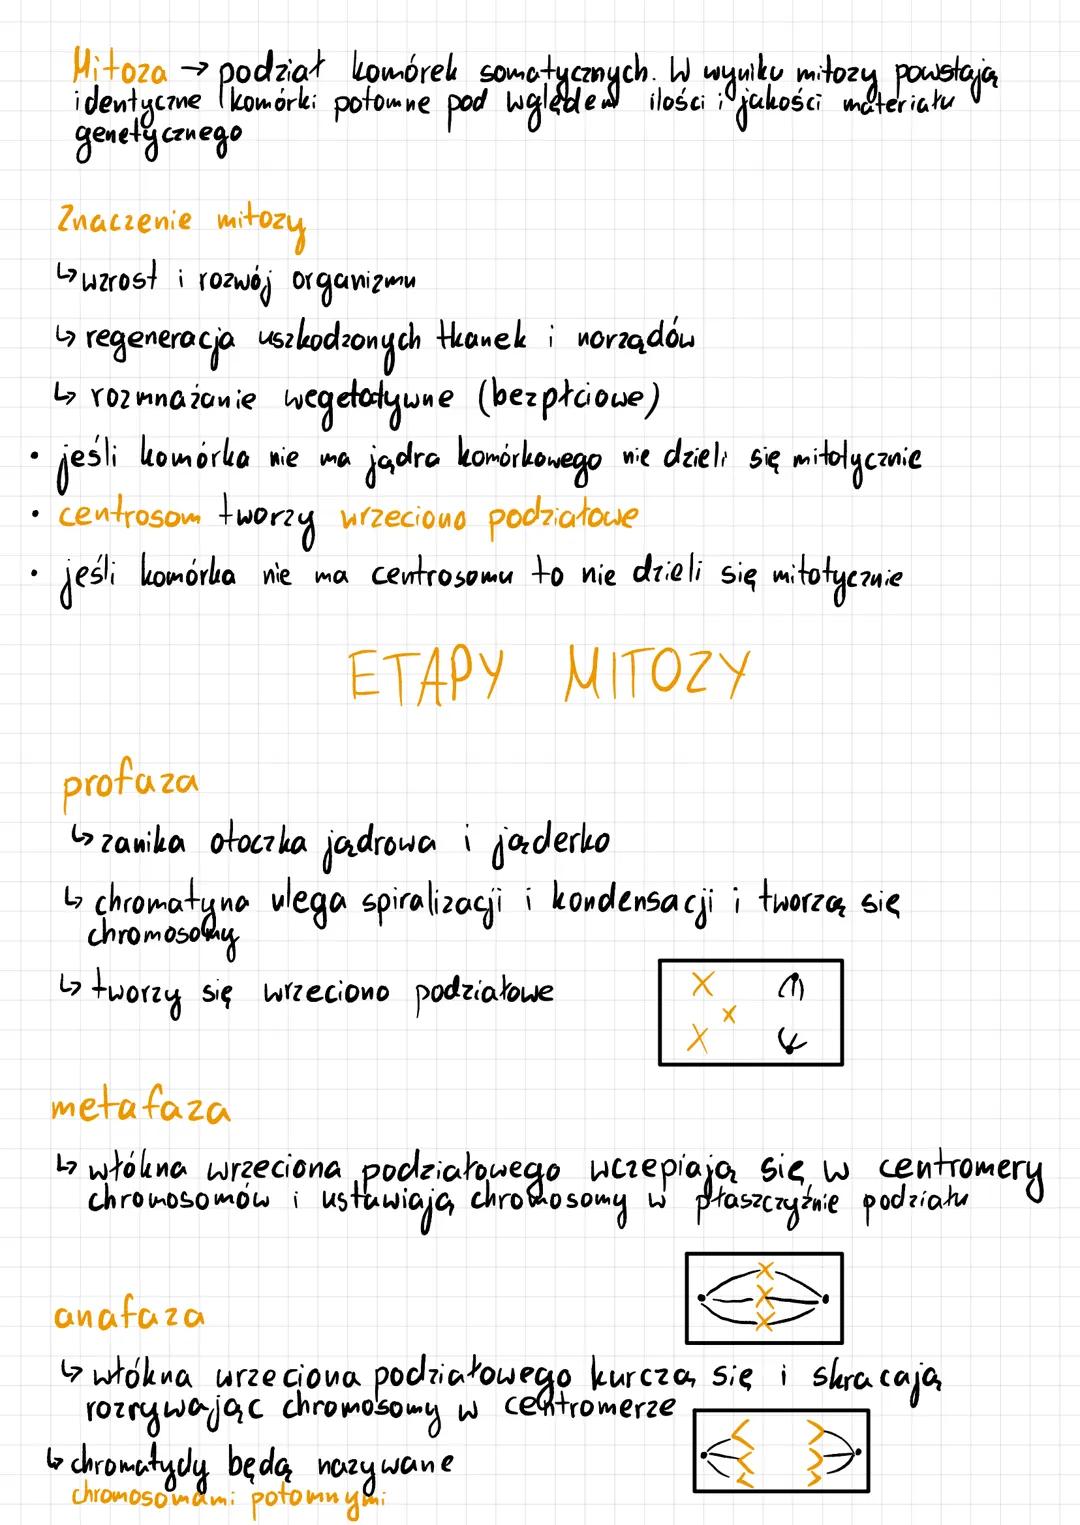 Mitoza → podział komórek somatycznych. W wyniku mitozy powstają
identyczne komórki potomne pod wględem ilości i jakości materiału
genetycznego
Znaczenie mitozy
↳ wzrost i rozwój organizmu
↳ regeneracja uszkodzonych tkanek i norządów
↳ rozmnażanie wegetatywne (bezpłciowe)
• jeśli komórka nie ma jądra komórkowego nie dzieli się mitotycznie
• centrosom tworzy wrzeciono podziałowe
• jeśli komórka nie ma centrosomu to nie dzieli się mitotycznie
ETAPY MITOZY
profaza
↳ zanika otoczka jądrowa i jąderko
↳ chromatyna ulega spiralizacji i kondensacji i tworzą się
chromosomy
↳ tworzy się wrzeciono podziałowe
metafaza
↳ włókna wrzeciona podziałowego wczepiają się w centromery
chromosomów i ustawiają chromosomy w płaszczyźnie podziału
anafaza
↳ włókna wrzeciona podziałowego kurczą się i skracają
rozrywając chromosomy w centromerze
↳ chromatydy będą nazywane
chromosomami potomnymi